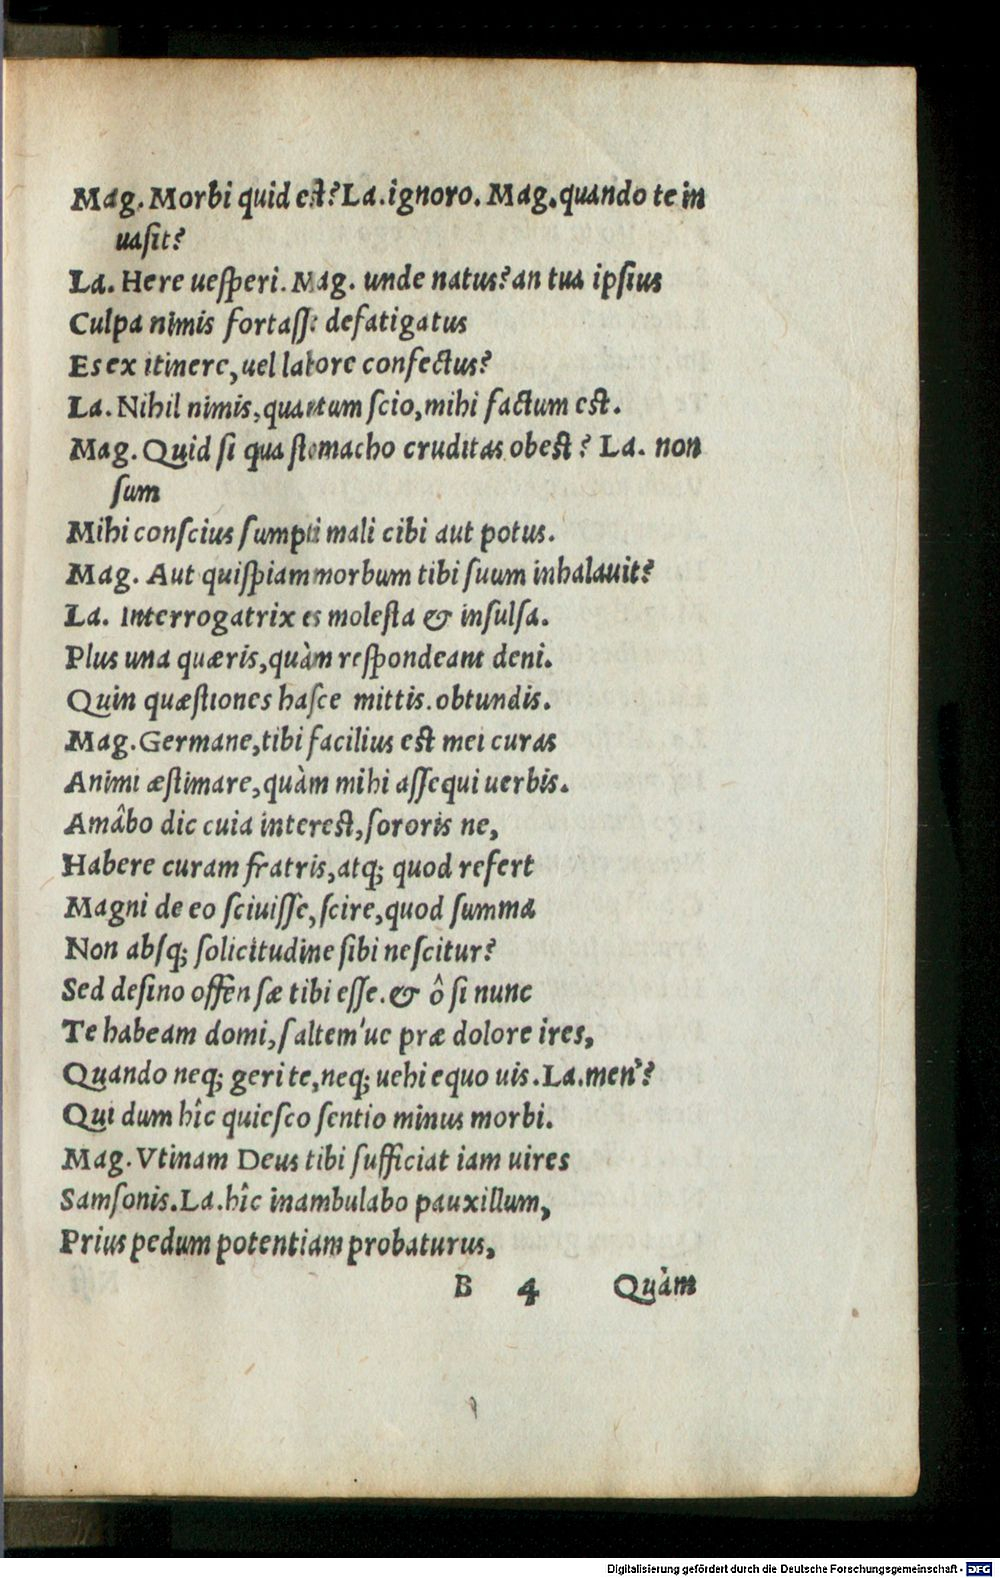 Mag. Morbi quid est? La. ignoro. Mag. quando te in
uaſit?
La. Here ueſperi. Mag. unde natus? an tua ipſius
Culpa nimis fortaſſe defatigatus
Es ex itinere, uel labore confectus?
La. Nihil nimis, quantum ſcio, mihi factum est.
Mag. Quid ſi qua ſtomacho cruditas obest? La. non
ſum
Mihi conſcius ſumpti mali cibi aut potus.
Mag. Aut quiſpiam morbum tibi ſuum inhalauit?
La. Interrogatrix es moleſta & inſulſa.
Plus una quæris, quàm reſpondeant deni.
Quin quæſtiones haſce mittis. obtundis.
Mag. Germane, tibi facilius est mei curas
Animi æſtimare, quàm mihi aſſequi uerbis.
Amâbo dic cuia interest, ſororis ne,
Habere curam fratris, atq; quod refert
Magni de eo ſciuiſſe, ſcire, quod ſumma
Non abſq; ſolicitudine ſibi neſcitur?
Sed deſino offenſæ tibi eſſe. & ô ſi nunc
Te habeam domi, ſaltem'ue præ dolore ires,
Quando neq; geri te, neq; uehi equo uis. La. men'?
Qui dum hîc quieſco ſentio minus morbi.
Mag. Vtinam Deus tibi ſufficiat iam uires
Samſonis. La. hîc inambulabo pauxillum,
Prius pedum potentiam probaturus,
B 4 Quàm
Digitalisierung gefördert durch die Deutsche Forschungsgemeinschaft - DFG